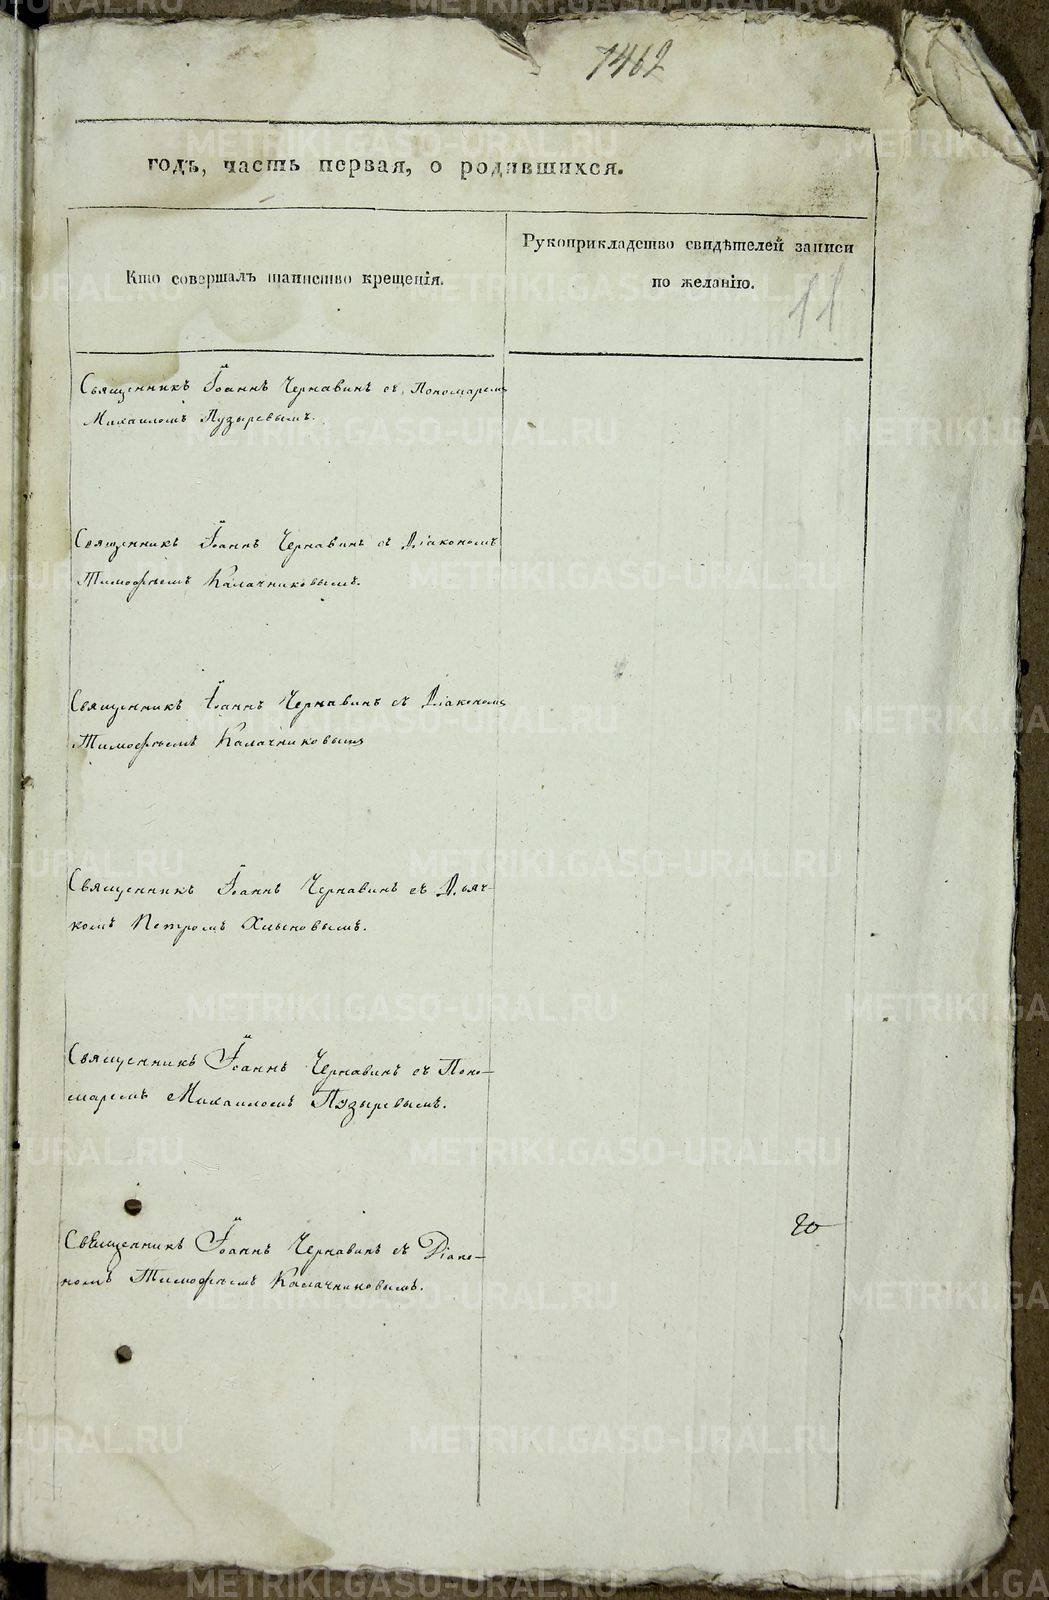 1462
годъ, часть первая, о родившихся.
Кто совершалъ таинство крещенія.
Рукоприкладство свидѣтелей записи
по желанію.
11
Священникъ Іоаннъ Чернавинъ съ Пономаремъ
Михаиломъ Пузыревымъ.
Священникъ Іоаннъ Чернавинъ съ Діакономъ
Тимофѣемъ Калачниковымъ.
Священникъ Іоаннъ Чернавинъ съ Діакономъ
Тимофѣемъ Калачниковымъ
Священникъ Іоаннъ Чернавинъ съ Дьяч-
комъ Петромъ Хлыновымъ.
Священникъ Іоаннъ Чернавинъ съ Поно-
маремъ Михаиломъ Пузыревымъ.
Священникъ Іоаннъ Чернавинъ съ Діако-
номъ Тимофѣемъ Калачниковымъ.
METRIKI.GASO-URAL.RU